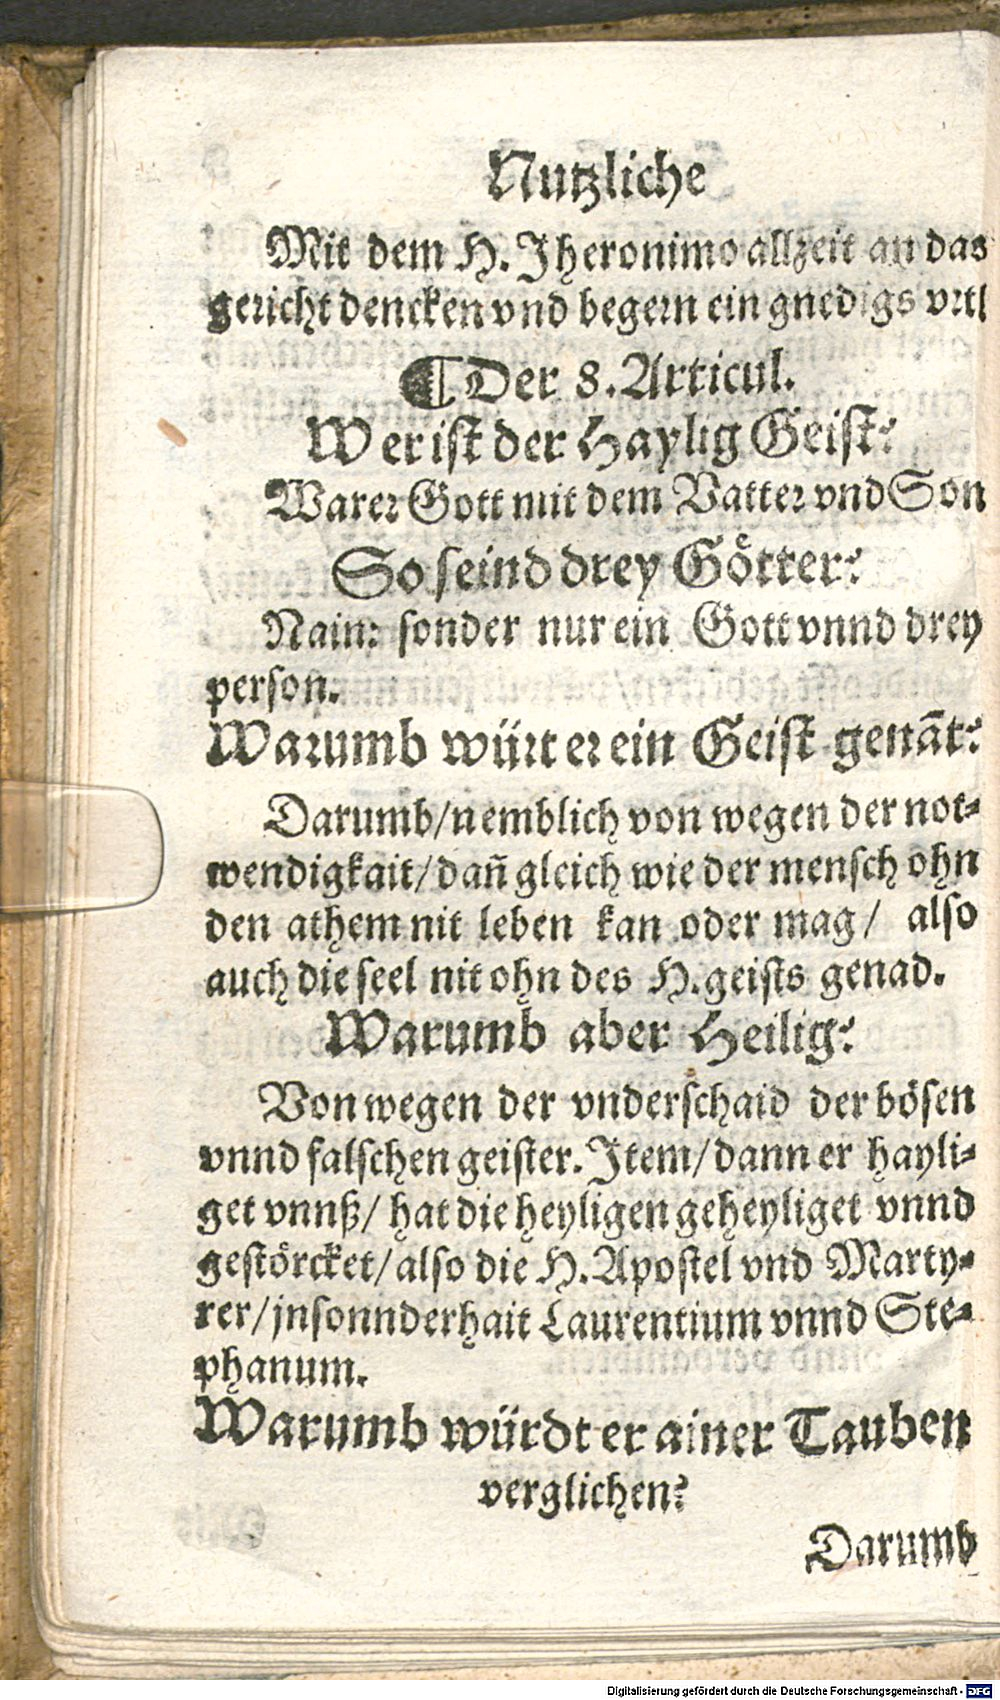 Nutzliche
Mit dem H. Jheronimo allzeit an das
gericht dencken vnd begern ein gnedigs vrtl
¶ Der 8. Articul.
Wer ist der Haylig Geist?
Warer Gott mit dem Vatter vnd Son
So seind drey Götter?
Nain: sonder nur ein Gott vnnd drey
person.
Warumb würt er ein Geist genāt?
Darumb/nemblich von wegen der not⸗
wendigkait/dañ gleich wie der mensch ohn
den athem nit leben kan oder mag/ also
auch die seel nit ohn des H. geists genad.
Warumb aber Heilig?
Von wegen der vnderschaid der bösen
vnnd falschen geister. Item/dann er hayli⸗
get vnnß/ hat die heyligen geheyliget vnnd
gestörcket/also die H. Apostel vnd Marty⸗
rer/jnsonnderhait Laurentium vnnd Ste⸗
phanum.
Warumb würdt er ainer Tauben
verglichen?
Darumb
Digitalisierung gefördert durch die Deutsche Forschungsgemeinschaft - DFG